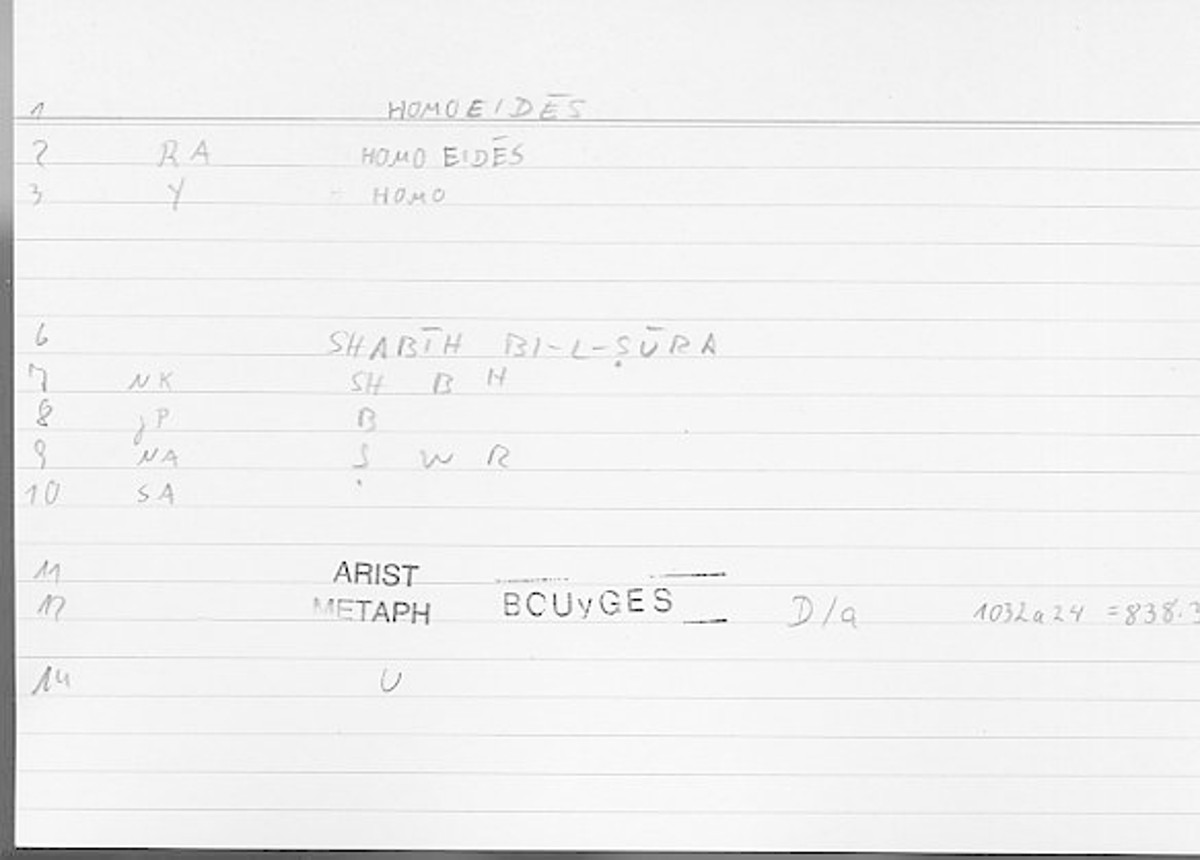 1 HOMOEIDĒS
2 RA HOMO EIDĒS
3 Y HOMO
6 SHABĪH BI-L-ṢŪRA
7 NK SH B H
8 jP B
9 NA Ṣ W R
10 SA
11 ARIST
12 METAPH BOUyGES D/a 1032a24 =838.3
14 U